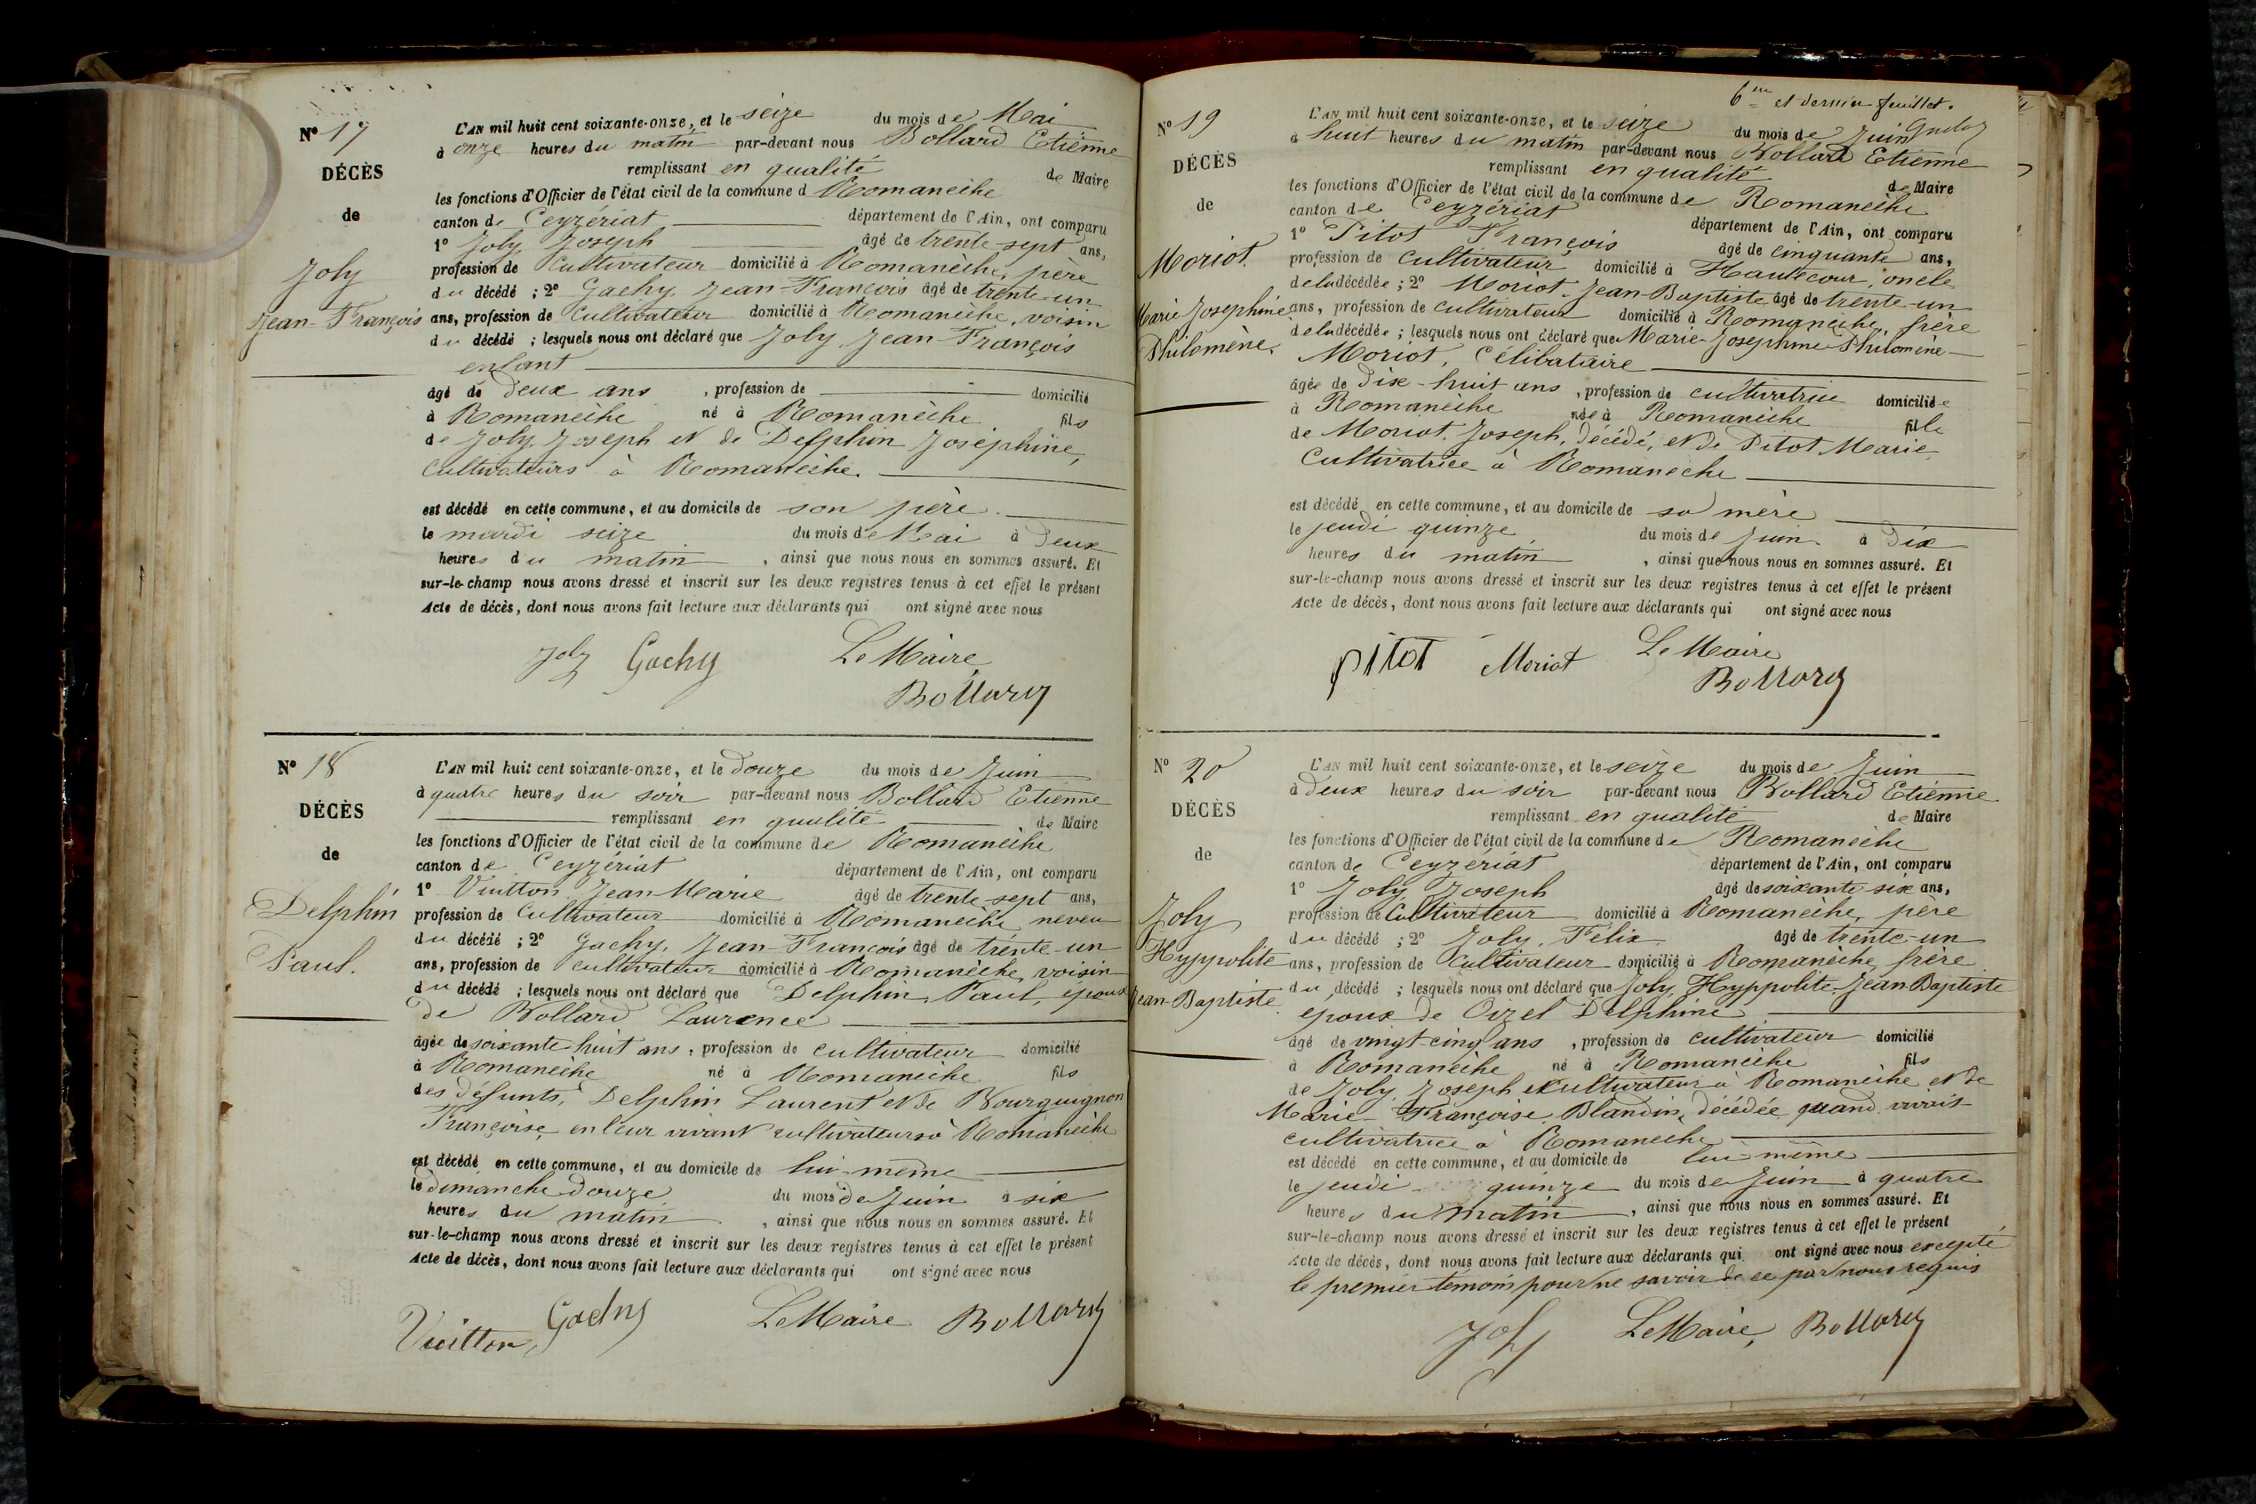 N° 17
DÉCÈS
de
Joly
Jean-François
L'AN mil huit cent soixante-onze, et le seize du mois de Mai
à onze heures du matin par-devant nous Bollard Etienne
remplissant en qualité de Maire
les fonctions d'Officier de l'état civil de la commune d Romanèche
canton de Ceyzériat département de l'Ain, ont comparu
1° Joly Joseph âgé de trente-sept ans,
profession de Cultivateur domicilié à Romanèche, père
du décédé ; 2° Gachy Jean-François âgé de trente-un
ans, profession de Cultivateur domicilié à Romanèche, voisin
du décédé ; lesquels nous ont déclaré que Joly Jean-François
enfant
âgé de deux ans, profession de domicilié
à Romanèche né à Romanèche fils
de Joly Joseph et de Delphin Joséphine,
Cultivateurs à Romanèche.
est décédé en cette commune, et au domicile de son père
le mardi seize du mois de Mai à deux
heures du matin, ainsi que nous nous en sommes assuré. Et
sur-le-champ nous avons dressé et inscrit sur les deux registres tenus à cet effet le présent
Acte de décès, dont nous avons fait lecture aux déclarants qui ont signé avec nous
Joly Gachy Le Maire
Bollard
N° 18
DÉCÈS
de
Delphin
Paul.
L'AN mil huit cent soixante-onze, et le douze du mois de Juin
à quatre heures du soir par-devant nous Bollard Etienne
remplissant en qualité de Maire
les fonctions d'Officier de l'état civil de la commune de Romanèche
canton de Ceyzériat département de l'Ain, ont comparu
1° Vuitton Jean Marie âgé de trente-sept ans,
profession de Cultivateur domicilié à Romanèche neveu
du décédé ; 2° Gachy, Jean-François âgé de trente-un
ans, profession de cultivateur domicilié à Romanèche, voisin
du décédé ; lesquels nous ont déclaré que Delphin, Paul, époux
de Bollard Laurence
âgée de soixante-huit ans, profession de cultivateur domicilié
à Romanèche né à Romanèche fils
des défunts, Delphin Laurent et de Bourguignon
Françoise, en leur vivant cultivateurs à Romanèche
est décédé en cette commune, et au domicile de lui-même
le dimanche douze du mois de Juin à six
heures du matin, ainsi que nous nous en sommes assuré. Et
sur-le-champ nous avons dressé et inscrit sur les deux registres tenus à cet effet le présent
Acte de décès, dont nous avons fait lecture aux déclarants qui ont signé avec nous
Vuitton Gachy Le Maire Bollard
6me et dernier feuillet.
N° 19
DÉCÈS
de
Moriot
Marie Joséphine
Philomène.
L'AN mil huit cent soixante-onze, et le seize du mois de Juin
à huit heures du matin par-devant nous Bollard Etienne
remplissant en qualité de Maire
les fonctions d'Officier de l'état civil de la commune de Romanèche
canton de Ceyzériat département de l'Ain, ont comparu
1° Pitot François âgé de cinquante ans,
profession de Cultivateur domicilié à Hautecour, oncle
de la décédée ; 2° Moriot Jean-Baptiste âgé de trente-un
ans, profession de cultivateur domicilié à Romanèche, frère
de la décédée ; lesquels nous ont déclaré que Marie-Joséphine-Philomène
Moriot, Célibataire
âgée de dix-huit ans, profession de cultivatrice domiciliée
à Romanèche née à Romanèche fille
de Moriot Joseph, décédé, et de Pitot Marie
Cultivatrice à Romanèche
est décédé en cette commune, et au domicile de sa mère
le jeudi quinze du mois de Juin à dix
heures du matin, ainsi que nous nous en sommes assuré. Et
sur-le-champ nous avons dressé et inscrit sur les deux registres tenus à cet effet le présent
Acte de décès, dont nous avons fait lecture aux déclarants qui ont signé avec nous
pitot Moriot Le Maire
Bollard
N° 20
DÉCÈS
de
Joly
Hyppolite
Jean-Baptiste
L'AN mil huit cent soixante-onze, et le seize du mois de Juin
à deux heures du soir par-devant nous Bollard Etienne
remplissant en qualité de Maire
les fonctions d'Officier de l'état civil de la commune de Romanèche
canton de Ceyzériat département de l'Ain, ont comparu
1° Joly Joseph âgé de soixante-six ans,
profession de Cultivateur domicilié à Romanèche, père
du décédé ; 2° Joly, Félix âgé de trente-un
ans, profession de Cultivateur domicilié à Romanèche frère
du décédé ; lesquels nous ont déclaré que Joly, Hyppolite-Jean-Baptiste
époux de Oizel Delphine
âgé de vingt-cinq ans, profession de cultivateur domicilié
à Romanèche né à Romanèche fils
de Joly, Joseph cultivateur à Romanèche et de
Marie Françoise Blandin, décédée quand vivait
cultivatrice à Romanèche
est décédé en cette commune, et au domicile de lui-même
le jeudi quinze du mois de Juin à quatre
heures du matin, ainsi que nous nous en sommes assuré. Et
sur-le-champ nous avons dressé et inscrit sur les deux registres tenus à cet effet le présent
Acte de décès, dont nous avons fait lecture aux déclarants qui ont signé avec nous excepté
le premier témoin pour ne savoir de ce par nous requis
Joly Le Maire, Bollard